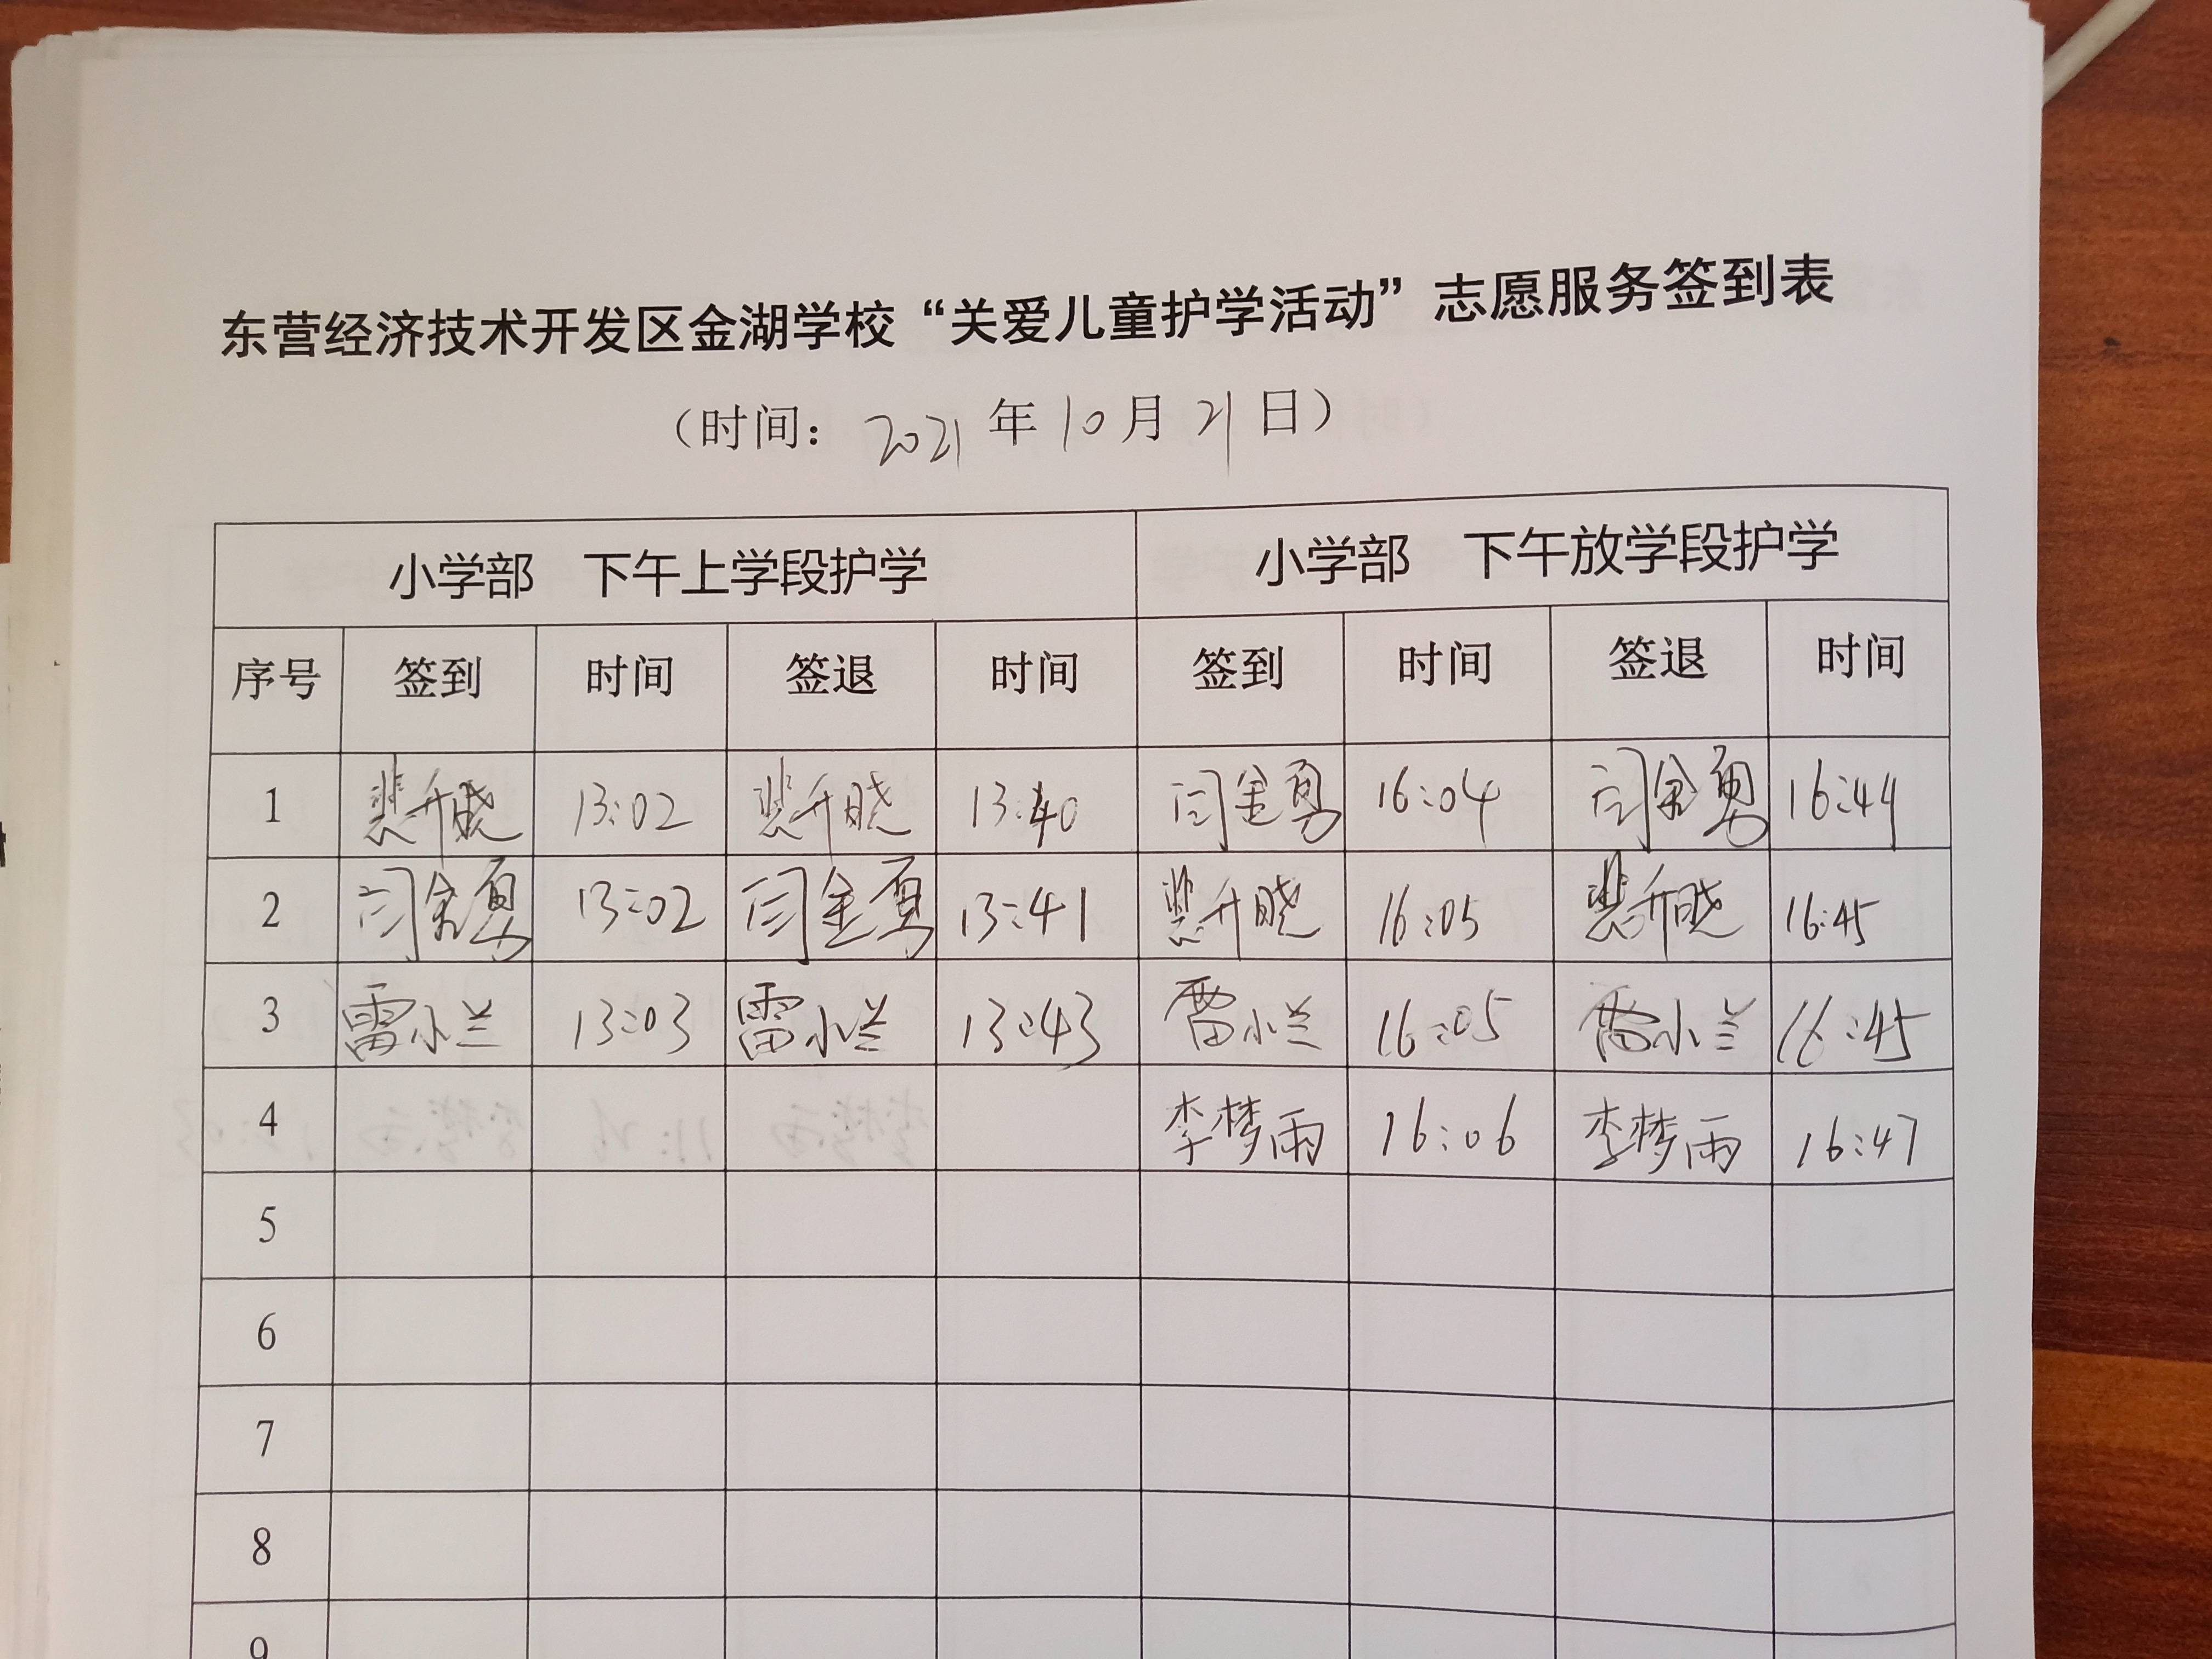 东营经济技术开发区金湖学校“关爱儿童护学活动”志愿服务签到表
（时间：2021年10月21日）
小学部 下午上学段护学 小学部 下午放学段护学
序号 签到 时间 签退 时间 签到 时间 签退 时间
1 裴升晓 13:02 裴升晓 13:40 闫金勇 16:04 闫金勇 16:44
2 闫金勇 13:02 闫金勇 13:41 裴升晓 16:05 裴升晓 16:45
3 雷小兰 13:03 雷小兰 13:43 雷小兰 16:05 雷小兰 16:45
4 李梦雨 16:06 李梦雨 16:47
5
6
7
8
9